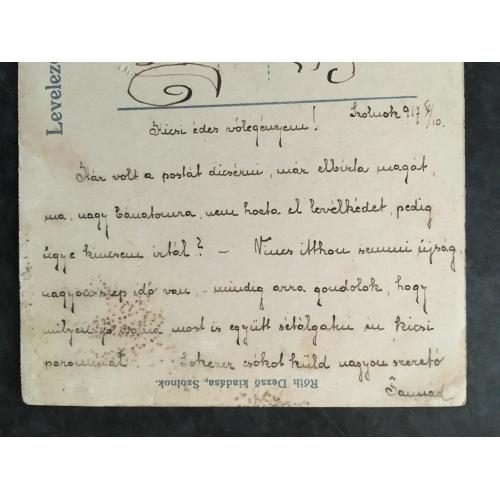 Levelez
Szolnok 917 V/10.
Kicsi édes vőlegényem!
Kár volt a postát dicsérni, már elbírta magát,
ma, nagy bánatomra, nem hozta el levélkédet, pedig
ugye kincsem írtál? – Nincs itthon semmi újság,
nagyon szép idő van – mindig arra gondolok, hogy
milyen jó volna most is együtt sétálgatni m kicsi
párommal. Sokszor csókol küld nagyon szerető
Róth Dezső kiadása, Szolnok.